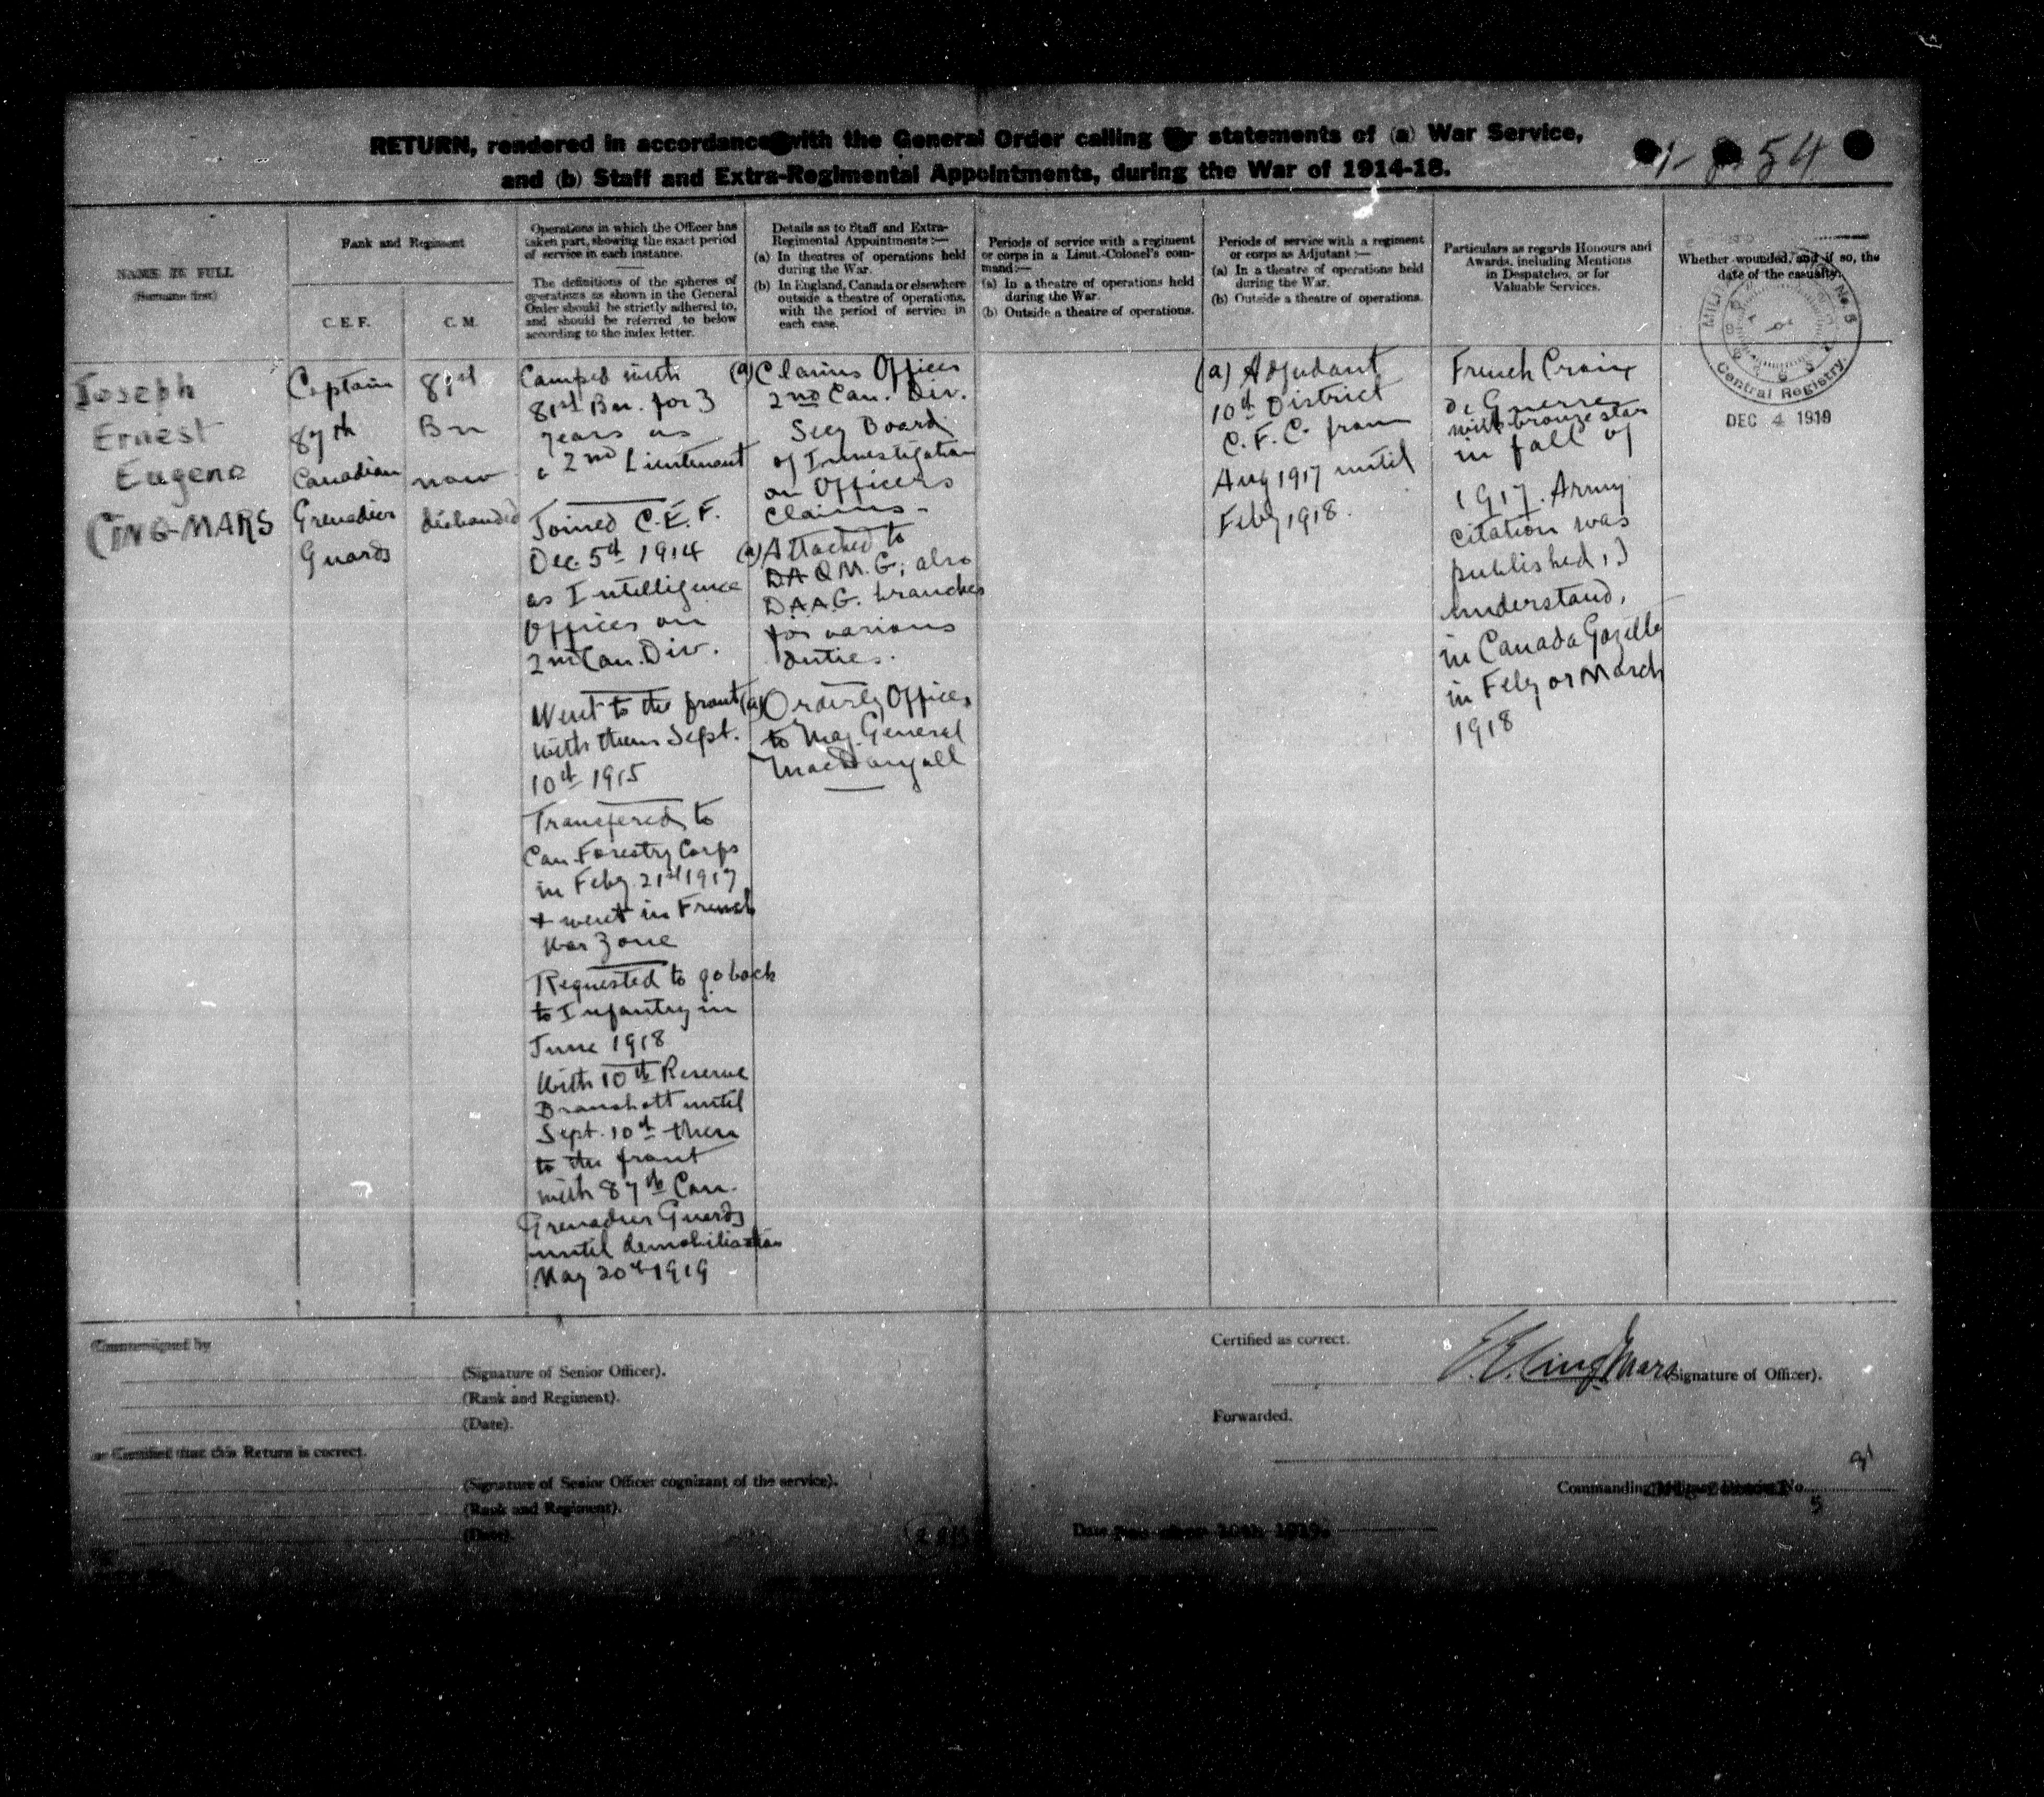 RETURN, rendered in accordance with the General Order calling for statements of (a) War Service,
and (b) Staff and Extra-Regimental Appointments, during the War of 1914-18.
54
NAME IN FULL
(Surname first)
Rank and Regiment
C. E. F.
C. M.
Operations in which the Officer has
taken part, showing the exact period
of service in each instance.
The definitions of the spheres of
operations as shown in the General
Order should be strictly adhered to,
and should be referred to below
according to the index letter.
Details as to Staff and Extra-
Regimental Appointments :—
(a) In theatres of operations held
during the War.
(b) In England, Canada or elsewhere
outside a theatre of operations,
with the period of service in
each case.
Periods of service with a regiment
or corps in a Lieut.-Colonel's com-
mand :—
(a) In a theatre of operations held
during the War.
(b) Outside a theatre of operations.
Periods of service with a regiment
or corps as Adjutant :—
(a) In a theatre of operations held
during the War.
(b) Outside a theatre of operations.
Particulars as regards Honours and
Awards, including Mentions
in Despatches, or for
Valuable Services.
Whether wounded, and if so, the
date of the casualty.
Central Registry
DEC 4 1919
Joseph
Ernest
Eugene
CINQ-MARS
Captain
87th
Canadian
Grenadier
Guards
81st
Bn
now
disbanded
Camped with
81st Bn. for 3
years as
a 2nd Lieutenant
Joined C.E.F.
Dec. 5th 1914
as Intelligence
Officer on
2nd Can. Div.
Went to the front
with them Sept.
10th 1915
Transfered to
Can. Forestry Corps
in Feby 21st 1917
+ went in French
War Zone
Requested to go back
to Infantry in
June 1918
With 10th Reserve
Bramshott until
Sept. 10th then
to the front
with 87th Can.
Grenadier Guards
until demobilization
May 20th 1919
(a) Claims Officer
2nd Can. Div.
Secy Board
of Investigation
on Officers
Claims -
(a) Attached to
DAQM.G, also
DAAG. branches
for various
duties.
(a) Orderly Officer
to Maj. General
MacDougall
(a) Adjudant
10th District
C.F.C. from
Aug 1917 until
Feby 1918.
French Croix
de Guerre
with bronze star
in fall of
1917. Army
citation was
published, I
understand,
in Canada Gazette
in Feby or March
1918
Countersigned by
(Signature of Senior Officer).
(Rank and Regiment).
(Date).
or Certified that this Return is correct.
(Signature of Senior Officer cognizant of the service).
(Rank and Regiment).
(Date).
Certified as correct.
E. E. Cinq Mars
(Signature of Officer).
Forwarded.
Commanding Military District No.
5
Date